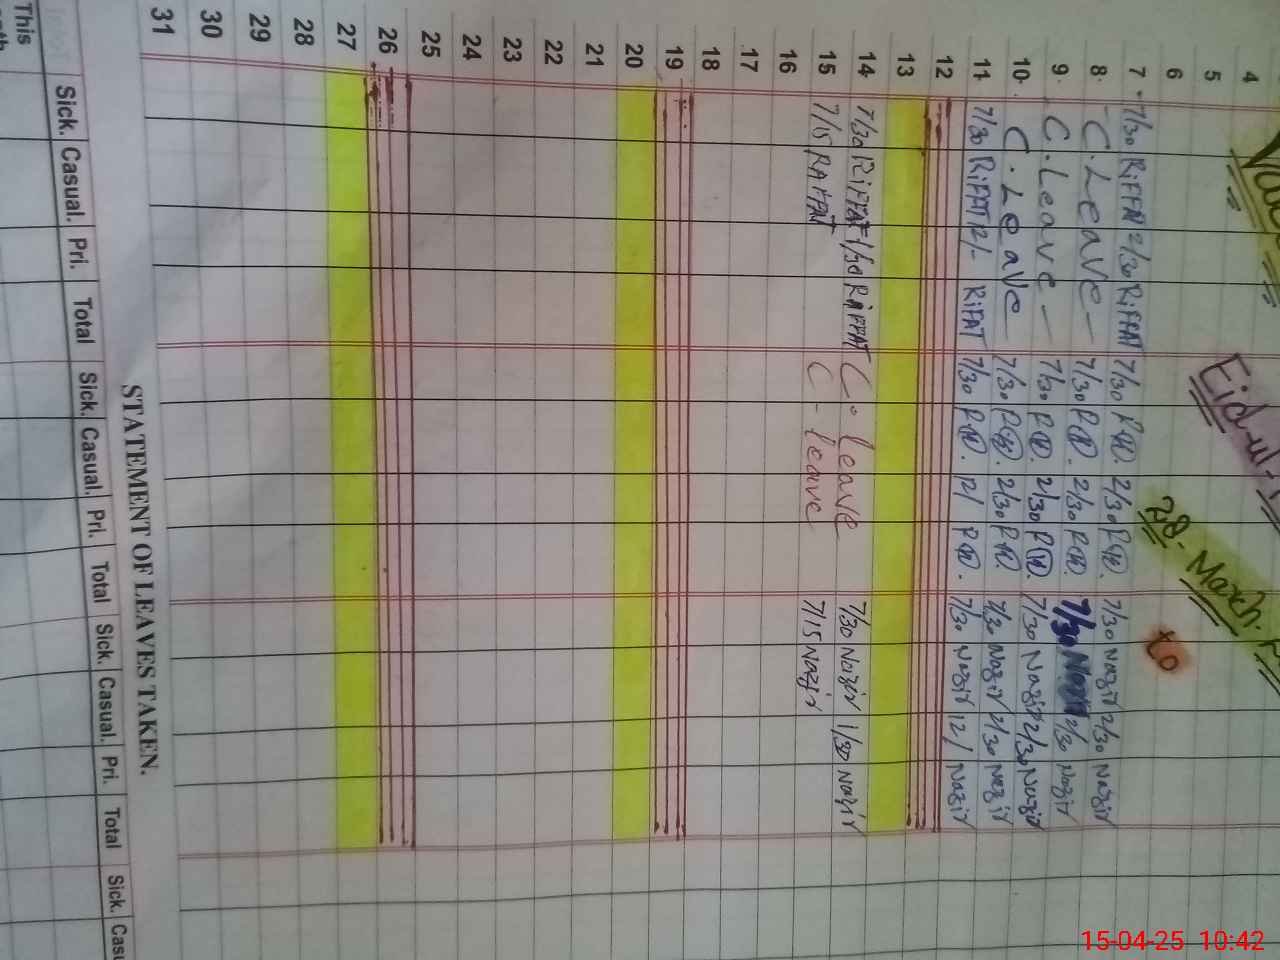 4
5
6
7 7/30 RiFFAT 2/30 RiFFAT 7/30 2/30 7/30 Nazir 2/30 Nazir
8 - C. Leave - 7/30 2/30 7/30 Nazir 2/30 Nazir
9 C. Leave - 7/30 2/30 7/30 Nazir 2/30 Nazir
10 C. Leave 7/30 2/30 7/30 Nazir 2/30 Nazir
11 7/30 RiFFAT 12/- RiFAT 7/30 12/ 7/30 Nazir 12/ Nazir
12
13
14 7/30 RiFFAT 1/30 RiFFAT C. leave 7/30 Nazir 1/30 Nazir
15 7/15 RAFFAT C - leave 7/15 Nazir
16
17
18
19
20
21
22
23
24
25
26
27
28
29
30
31
Eid-ul-
28- March.
STATEMENT OF LEAVES TAKEN.
Sick. Casual. Pri. Total Sick. Casual. Pri. Total Sick. Casual. Pri. Total Sick. Casu
This
15-04-25 10:42